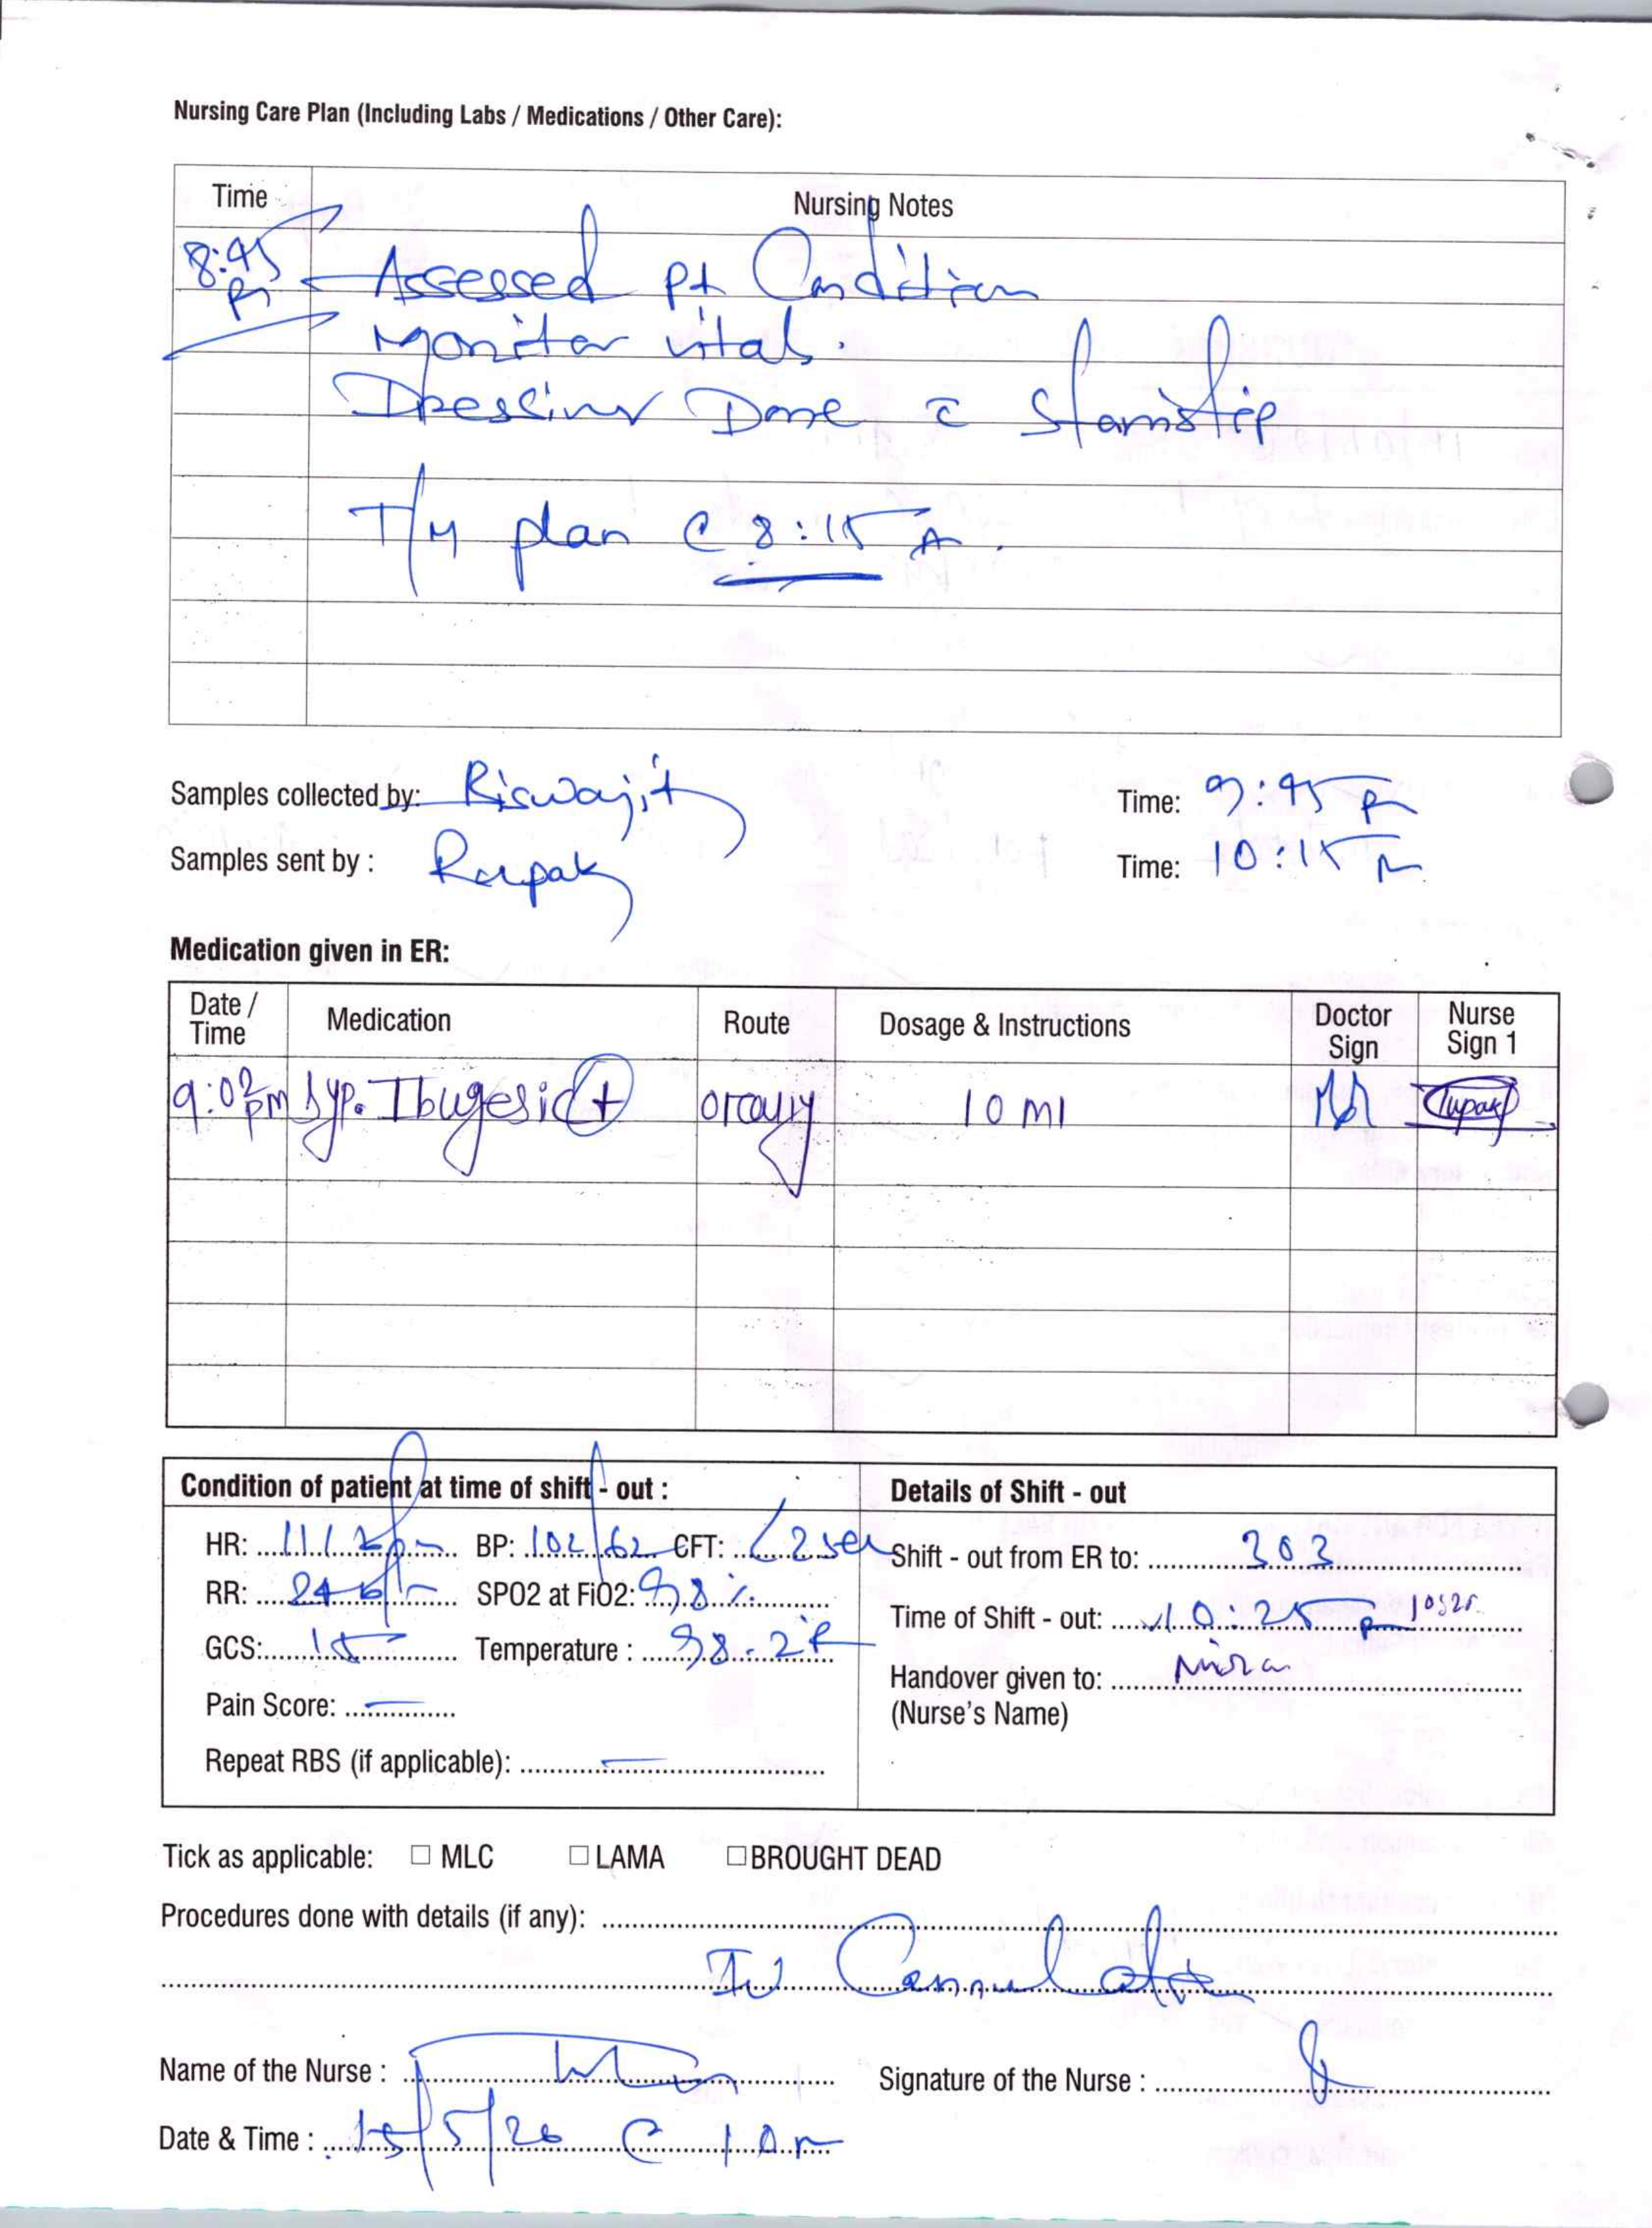 Nursing Care Plan (Including Labs / Medications / Other Care):
Time Nursing Notes
8:45 Assessed pt Condition
Pm
Monitor vital.
Dressing Done c̄
T/M plan @ 8:15
Samples collected by: Biswajit Time: 9:45 P
Samples sent by : Rupak Time: 10:15
Medication given in ER:
Date / Time Medication Route Dosage & Instructions Doctor Sign Nurse Sign 1
9:02 pm Syp. Ibugesic + orally 10 ml Rupak
Condition of patient at time of shift - out : Details of Shift - out
HR: BP: 102/62 CFT: <2 sec Shift - out from ER to: 303
RR: 24 b/m SPO2 at FiO2: 98% Time of Shift - out: 10:25 P 10:25
GCS: 15 Temperature : 98.2 F Handover given to:
Pain Score: — (Nurse's Name)
Repeat RBS (if applicable): —
Tick as applicable: ☐ MLC ☐ LAMA ☐ BROUGHT DEAD
Procedures done with details (if any):
IV Cannulation
Name of the Nurse : Signature of the Nurse :
Date & Time : 15/5/26 @ 10